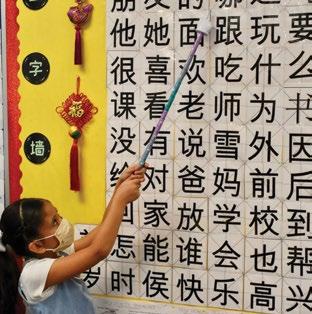 字
墙
福
朋 友 哪
他 她 面 跟 玩 要
很 喜 欢 吃 什 么
课 看 老 师 为 书
没 有 说 雪 外 因
给 对 爸 妈 前 后
回 家 放 学 校 到
怎 能 谁 会 也 帮
岁 时 候 快 乐 高 兴